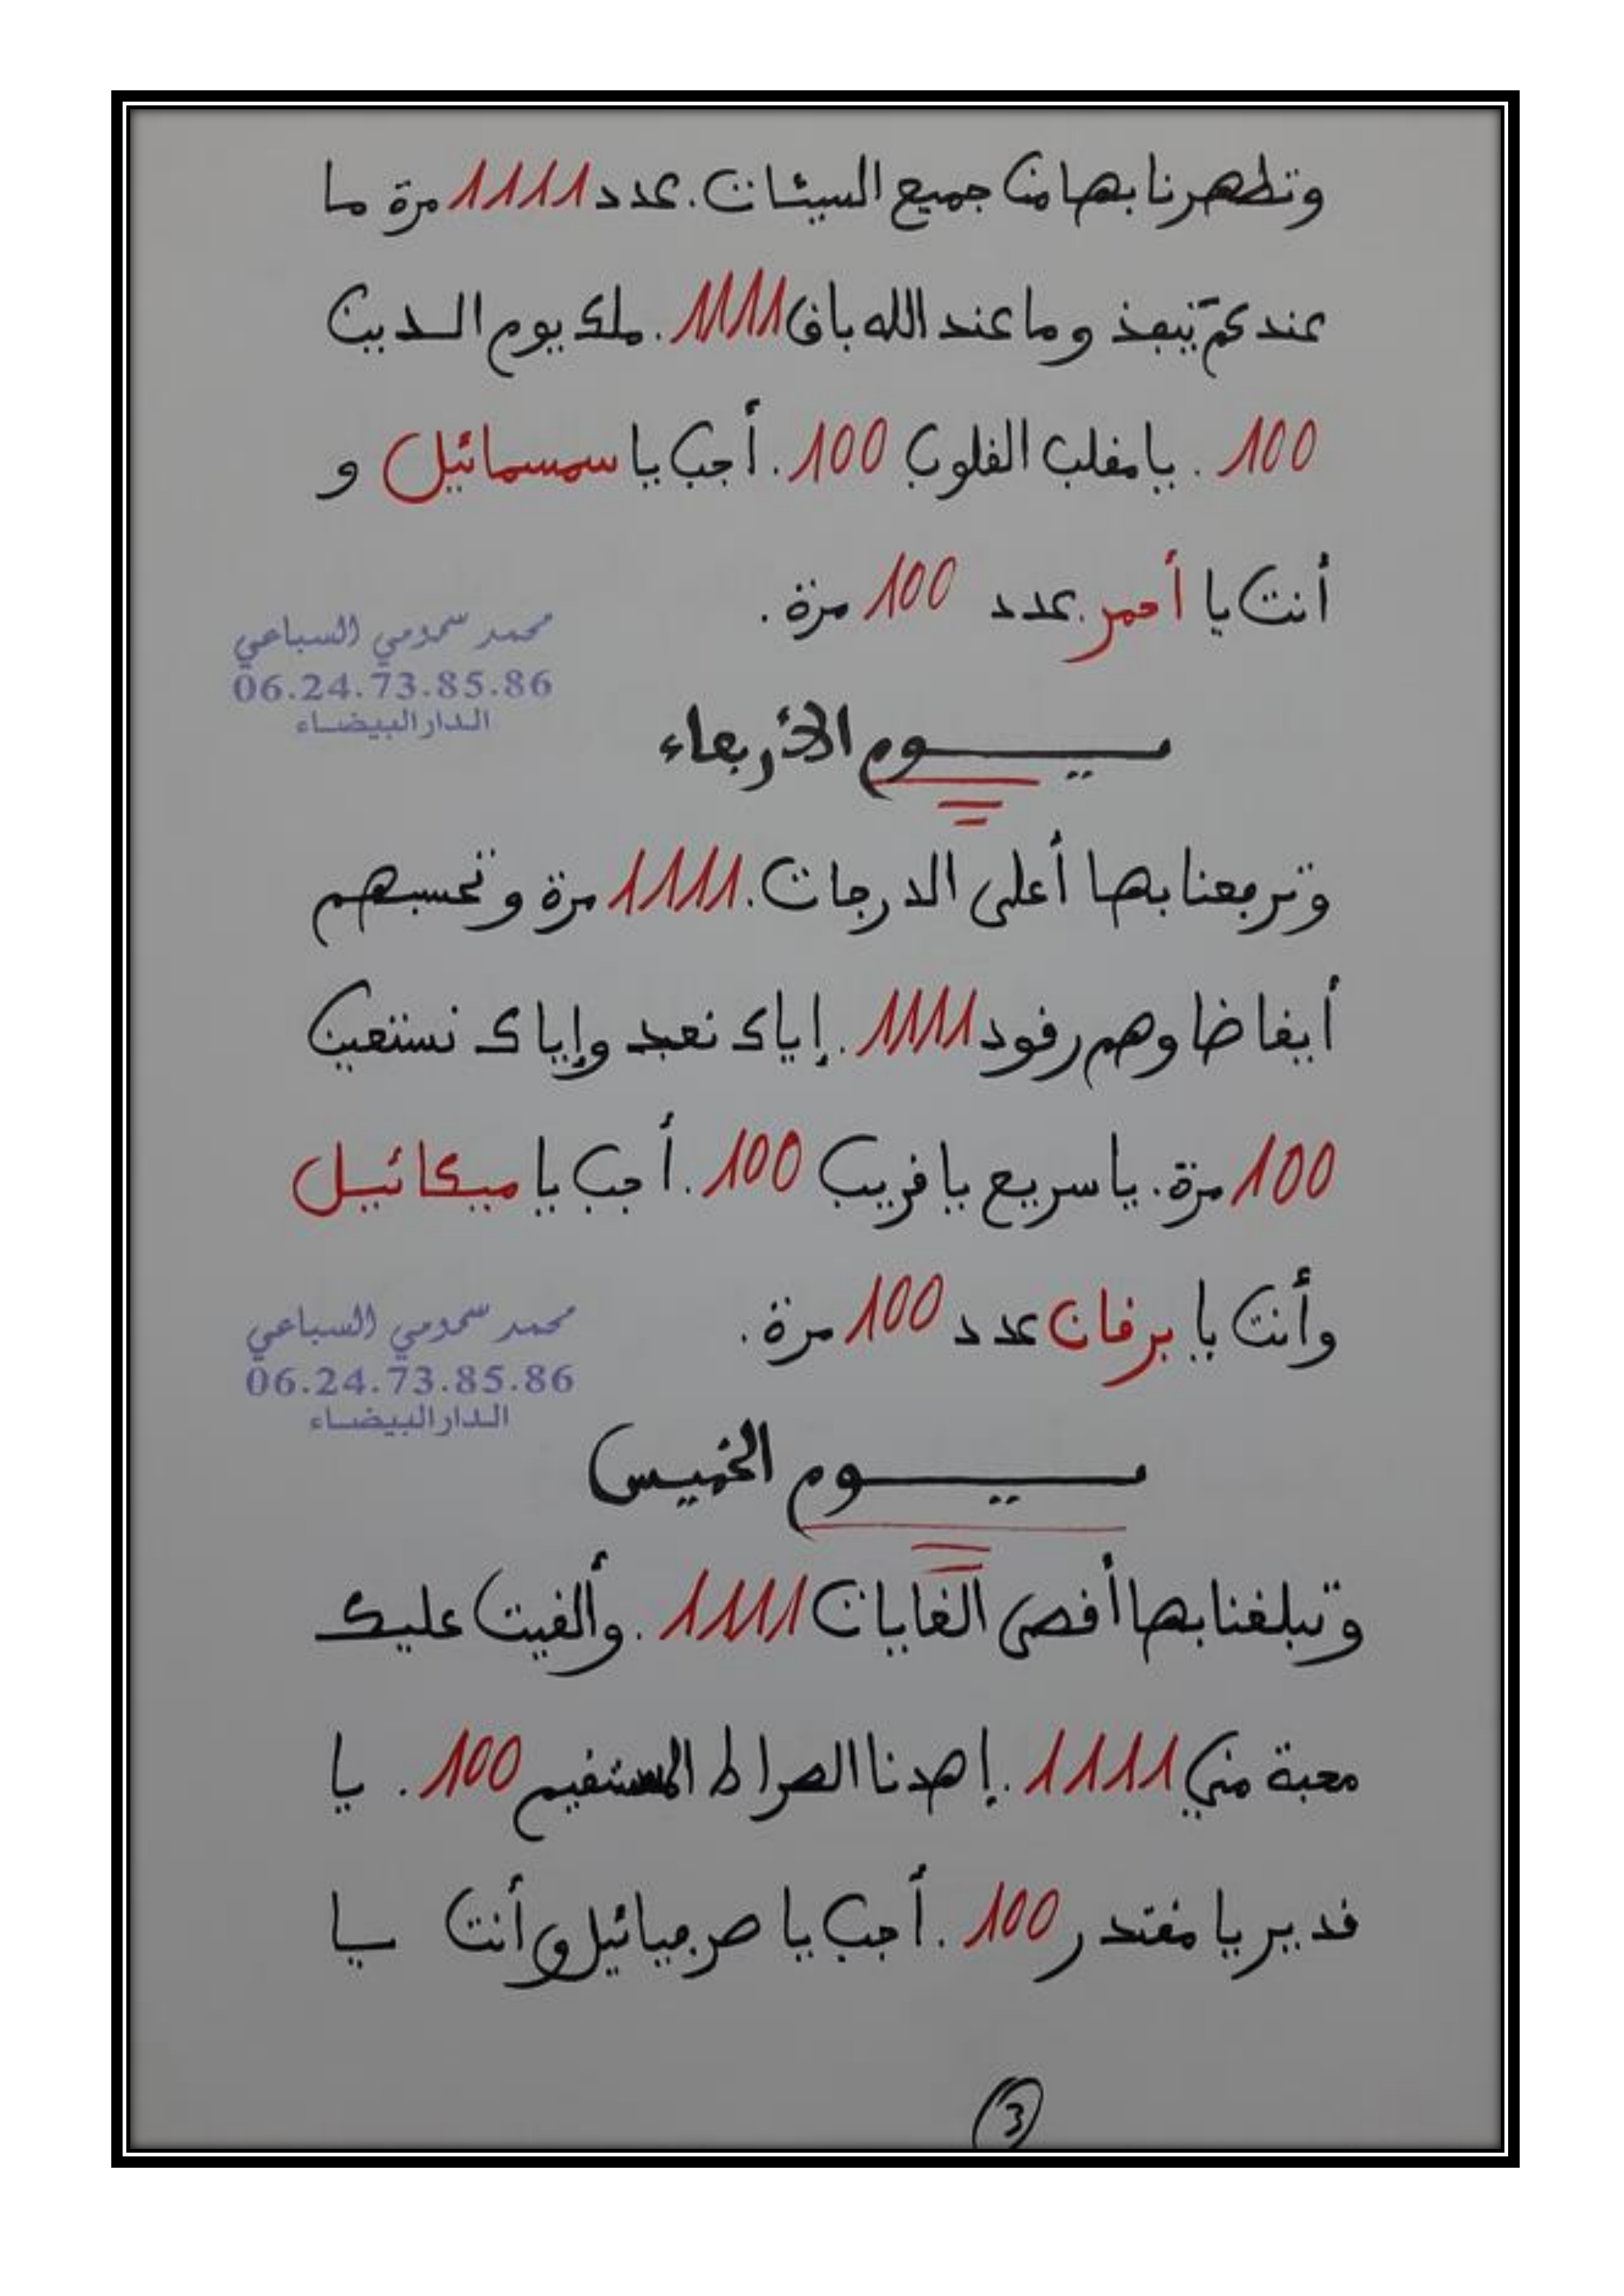 وتطهرنا بها من جميع السيئات. عدد 1111 مرة ما
عندكم ينفذ وما عند الله باق 1111. ملك يوم الدين
100. يا مقلب القلوب 100. أجب يا سمسمائيل و
أنت يا أحمر. عدد 100 مرة.
محمد سحمومي السباعي
06.24.73.85.86
الدار البيضاء
يوم الأربعاء
وترفعنا بها أعلى الدرجات. 1111 مرة وتحسبهم
أيقاظا وهم رقود 1111. إياك نعبد وإياك نستعين
100 مرة. يا سريع يا قريب 100. أجب يا ميكائيل
وأنت يا برقان عدد 100 مرة.
محمد سحمومي السباعي
06.24.73.85.86
الدار البيضاء
يوم الخميس
وتبلغنا بها أقصى الغايات 1111. وألقيت عليك
محبة مني 1111. إهدنا الصراط المستقيم 100. يا
قدير يا مقتدر 100. أجب يا صرفيائيل وأنت يا
3